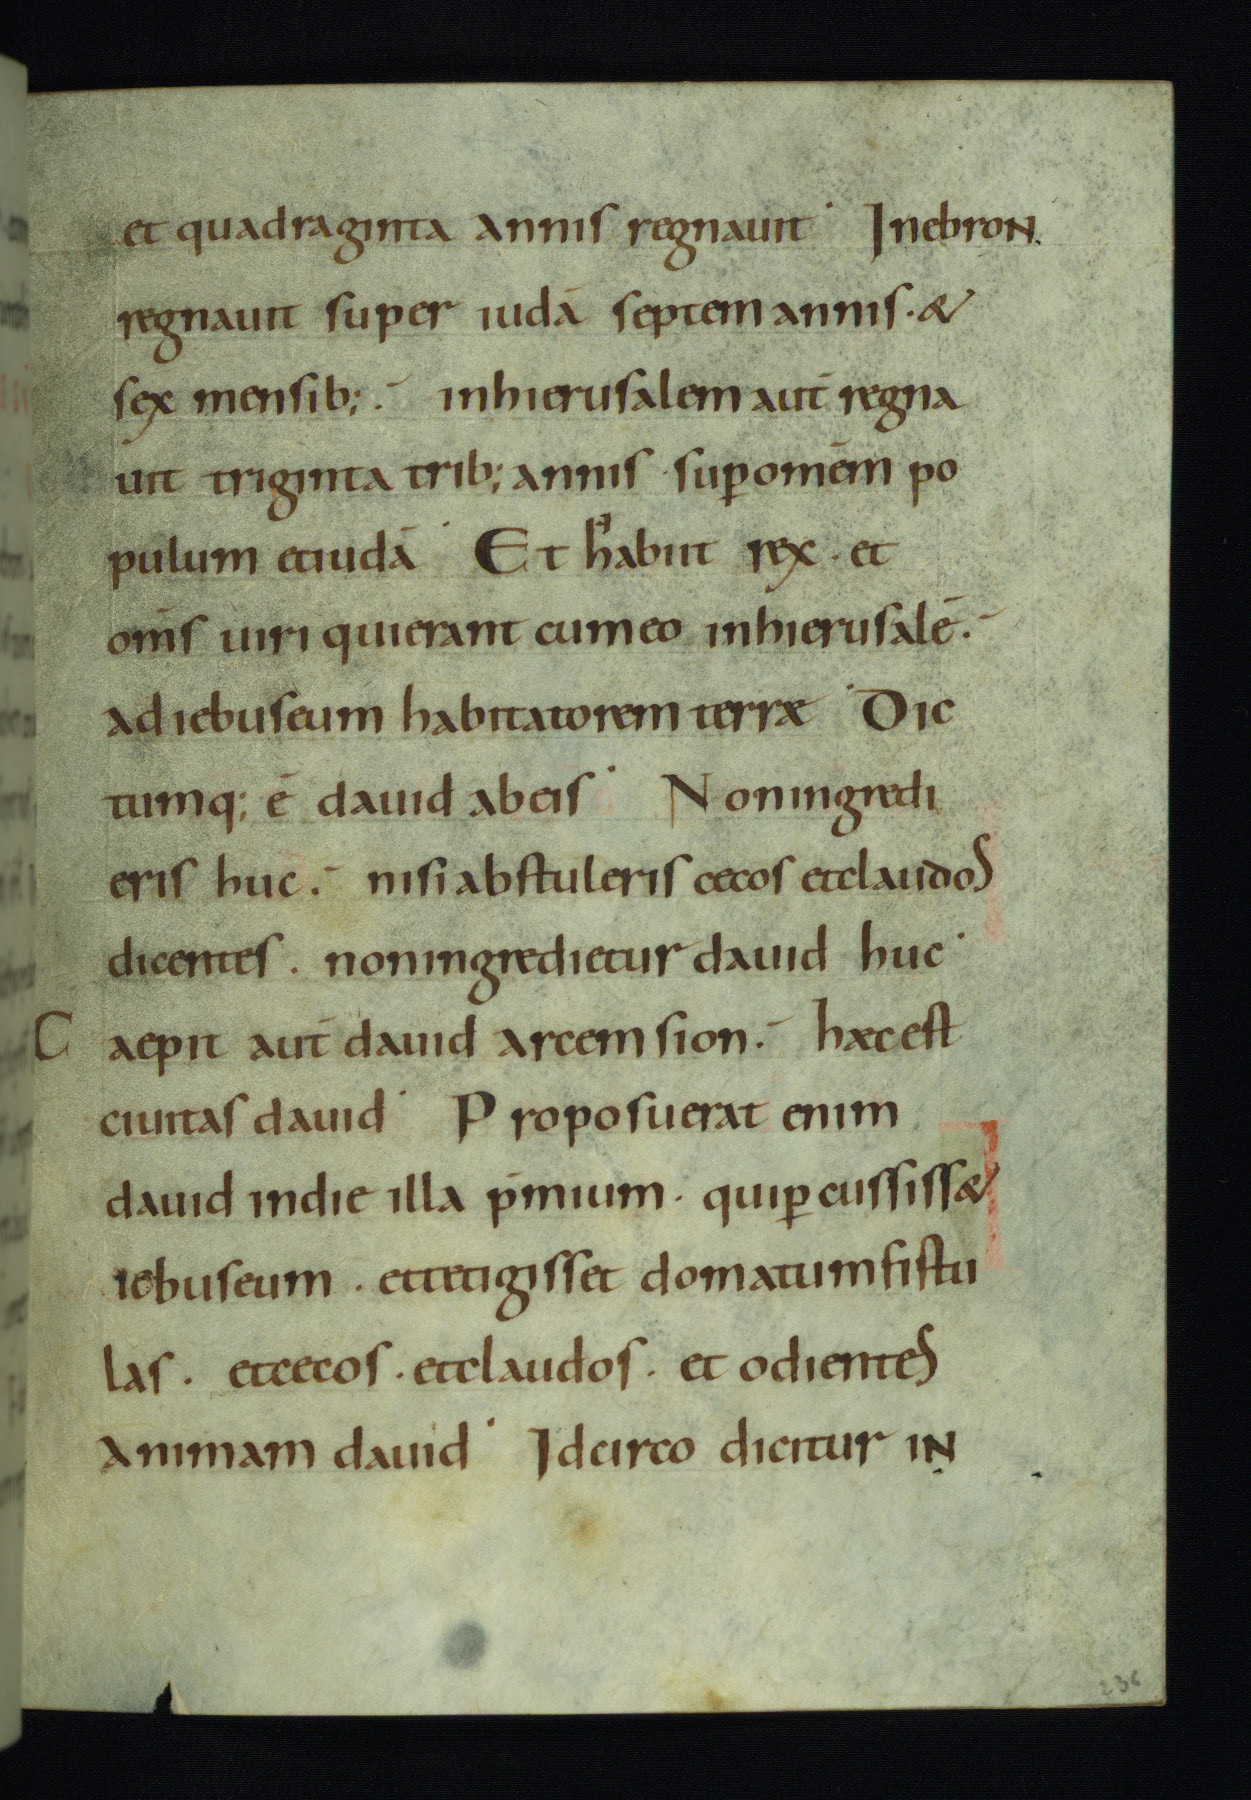 et quadraginta annis regnauit · Inebron.
regnauit super iudā septem annis · &
sex mensib; · inhierusalem aut̄ regna
uit triginta trib; annis · suꝑ omēm po
pulum etiudā · Et habiit rex · et
om̄s uiri quierant cumeo inhierusalē ·
ad iebuseum habitatorem terræ · Dic
tumq; ē dauid abeis · Noningredi
eris huc · nisi abstuleris cecos etclaudos
dicentes · noningredietur dauid huc ·
Caepit aut̄ dauid arcem sion · hæc est
ciuitas dauid · Proposuerat enim
dauid indie illa p̄mium · quiꝑcussiss&
iebuseum · ettetigisset domatum fistu
las · etcecos · etclaudos · et odientes
animam dauid · Idcirco dicitur in
236